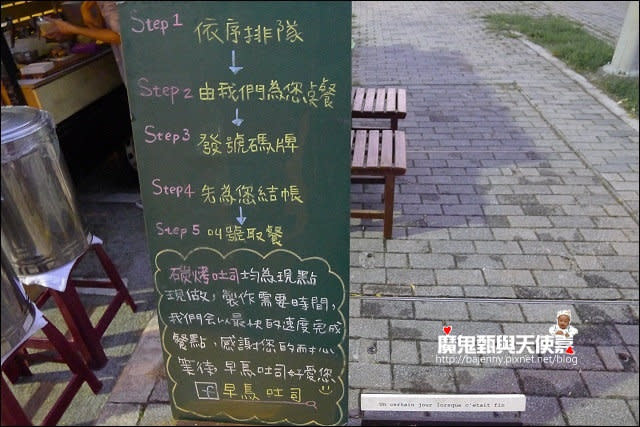 Step1 依序排隊
Step2 由我們為您點餐
Step3 發號碼牌
Step4 先為您結帳
Step5 叫號取餐
碳烤吐司均為現點
現做，製作需要時間，
我們會以最快的速度完成
餐點，感謝您的耐心
等待 早鳥吐司好愛您
f 早鳥吐司
魔鬼甄與天使嘉
http://bajenny.pixnet.net/blog
Un certain jour lorsque c'etait fiz